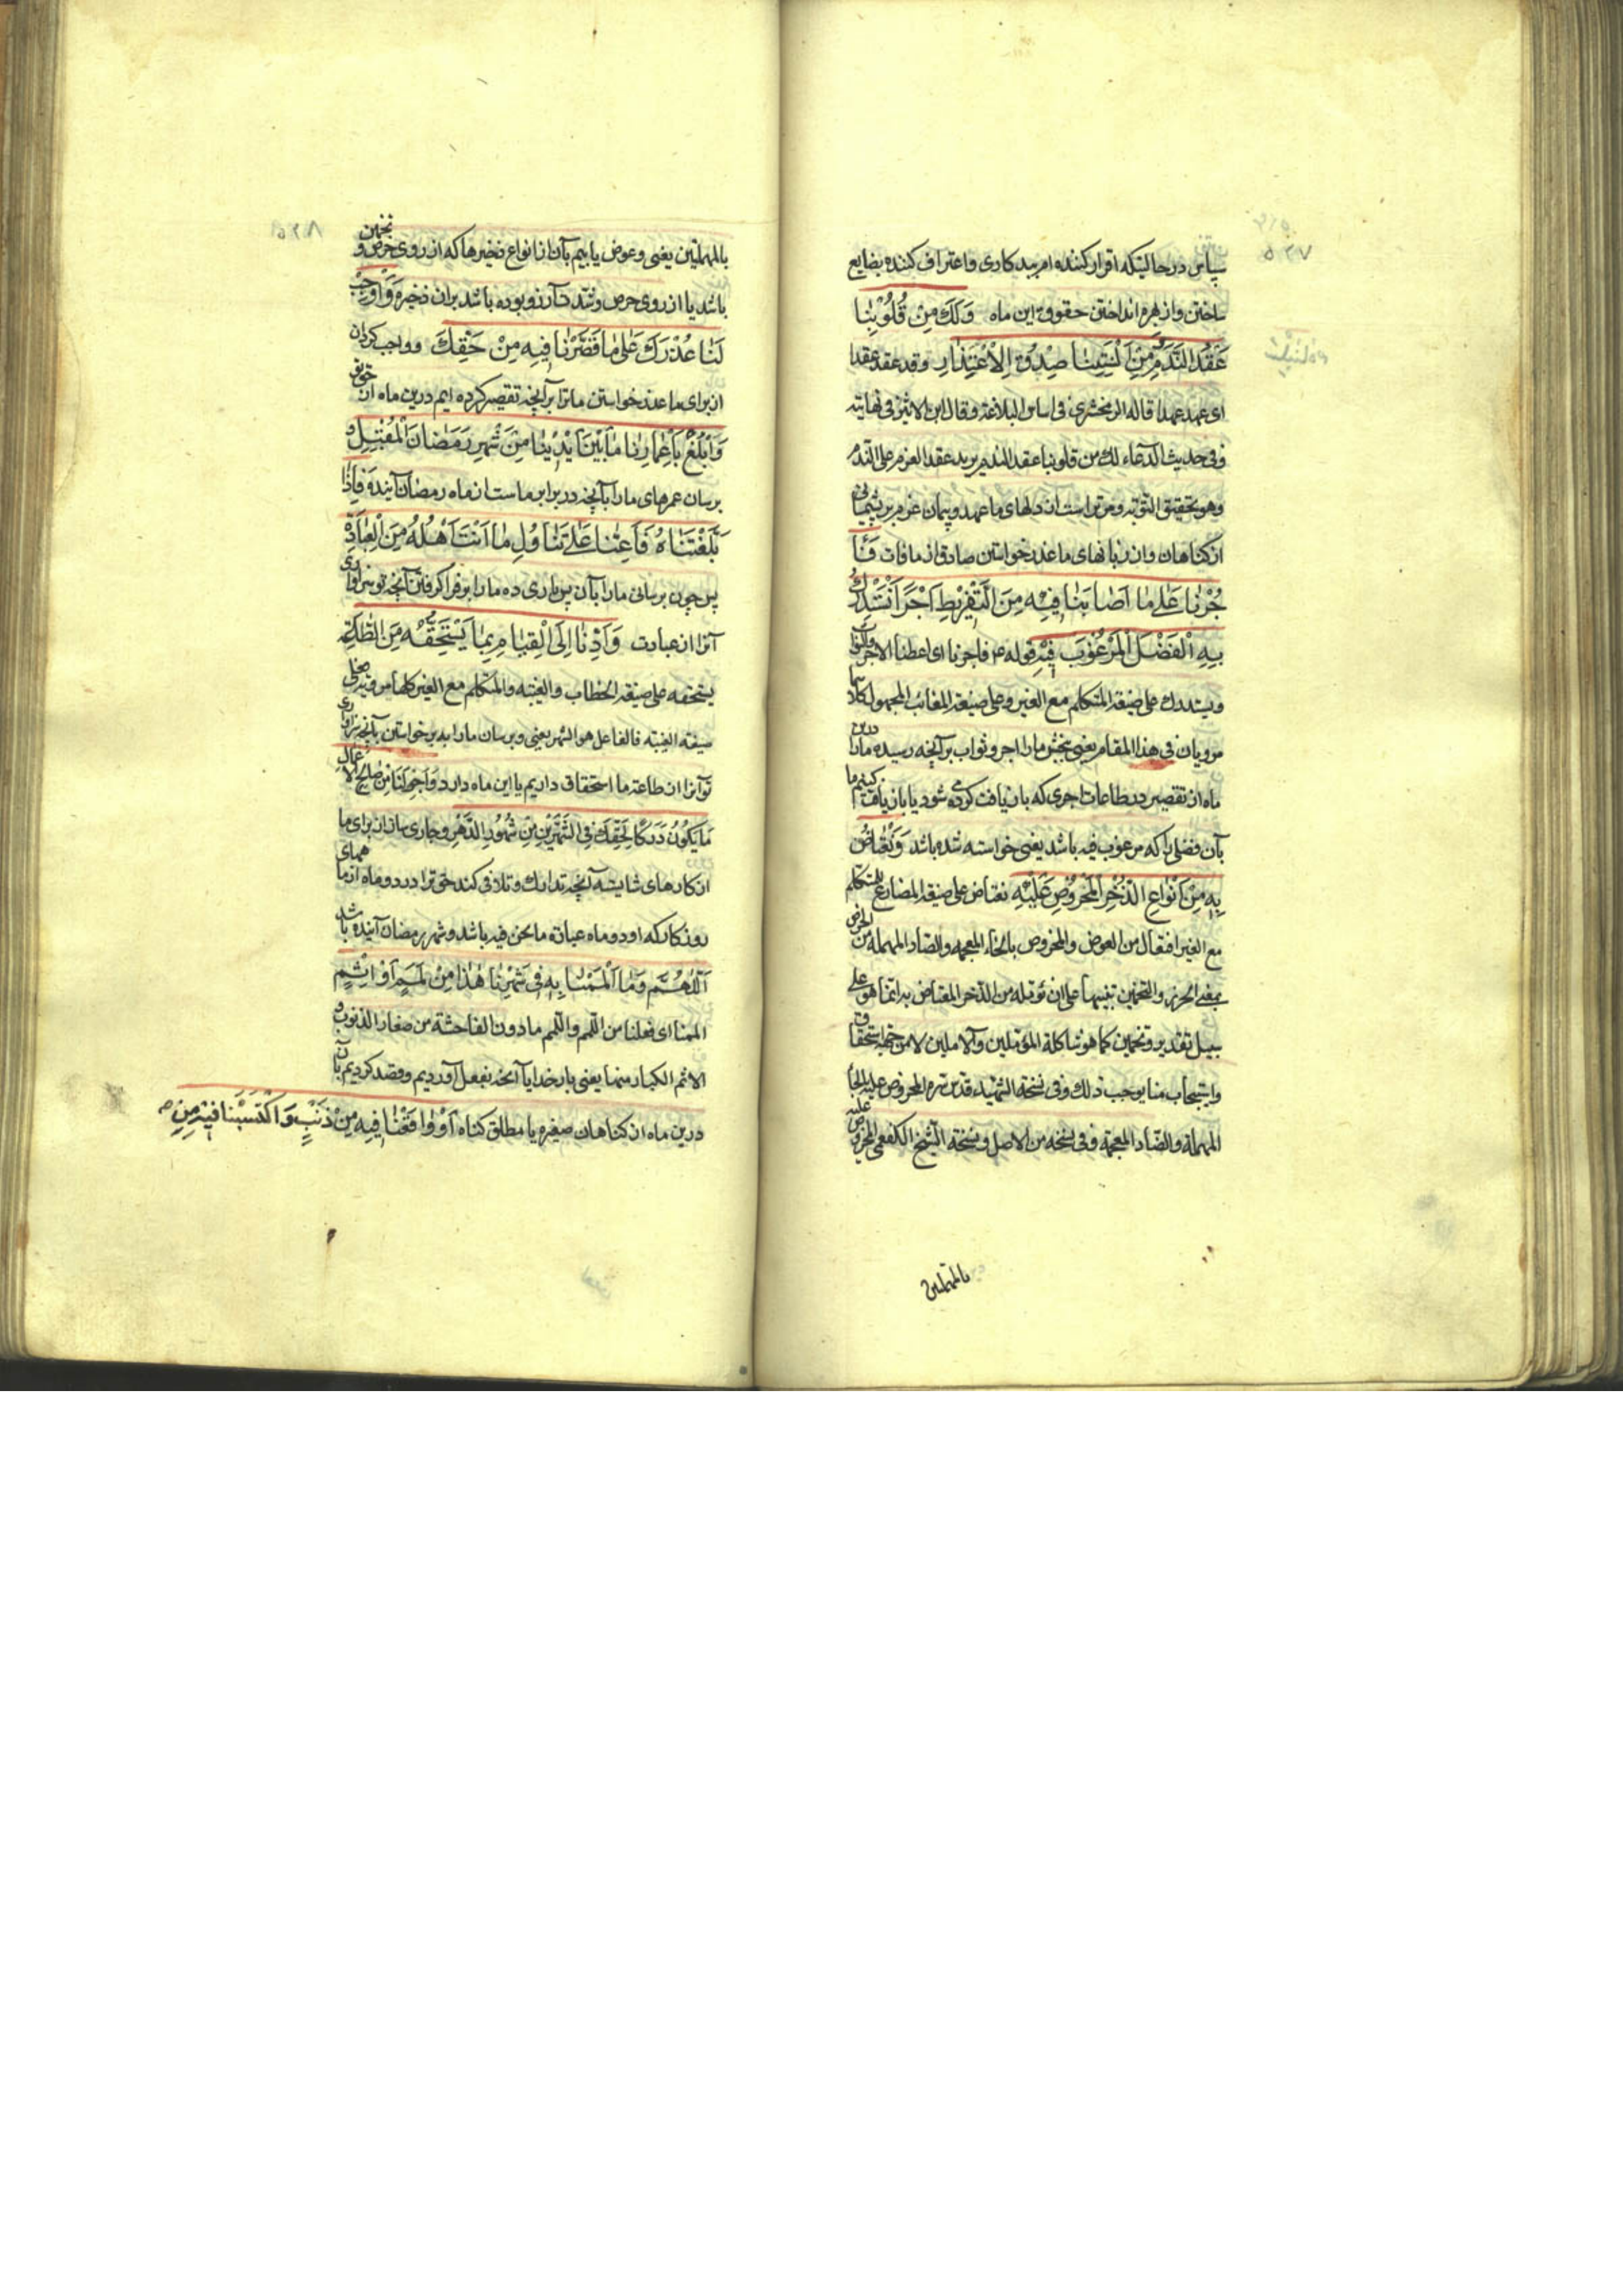 سپاس در حالتیکه اقرار کننده ام ببد کاری واعتراف کننده بضایع
ساختن واز بهره انداختن حقوق این ماه وَلَكَ مِنْ قُلُوبِنَا
عَقْدُ النَّدَمِ وَمِنْ اَلْسِنَتِنَا صِدْقُ الْاِعْتِذَارِ وقد عقد عقدا
ای عهد عهدا قاله الزمخشری فی اساس البلاغة وقال ابن الاثیر فی نهایته
وفی حدیث الدعاء لك من قلوبنا عقد الندم یرید عقد العزم علی الندم
وهو تحقیق التوبه ومر تراست از دلهای ما عهد وپیمان عزم بر پشیمانی
از کناهان واز زبانهای ما عذر خواستن صادق از مافات فَأْ
جُرْنَا عَلَى مَا اَصَابَنَا فِيهِ مِنَ التَّفْرِيطِ اَجْرًا نَسْتَدْرِكُ
بِهِ الْفَضْلَ الْمَرْغُوبَ فِيهِ قوله ع فاجرنا ای اعطنا الاجر والثواب
ویستدرك علی صیغة المتكلم مع الغیر وعلی صیغة الغائب المجهول کلاهما
مرویان فی هذا المقام یعنی ببخش مارا اجر وثواب بر آنچه رسیده مارا درین
ماه از تقصیر در طاعات اجری که باز یافت کرده شود یا باز یافت کنیم ما
بآن فضلی را که مرغوب فیه باشد یعنی خواسته شده باشد وَنَعْتَاضُ
بِهِ مِنْ اَنْوَاعِ الذُّخْرِ الْمَحْرُوصِ عَلَيْهِ نعتاض علی صیغة المضارع للمتکلم
مع الغیر افتعال من العوض والمخروص بالخاء المعجمه والصاد المهمله من الخرص
بمعنی الحرز والتخمین تنبیها علی ان نؤمله من الذخر المعتاض به انما هو علی
سبیل تقدیر وتخمین کما هو شاکلة المؤملین والآملین لا من جهة استحقاق
واستیجاب منا یوجب ذلك وفی نسخة الشهید قدس سره المحروض علیه بالحاء
المهملة والضاد المعجمة وفی نسخه من الاصل ونسخة الشیخ الکفعمی المحروص علیه
بالمهملتین
بالمهملتین یعنی وعوض یابیم بآن از انواع ذخیرها که از روی خرص و تخمین
باشد یا از روی حرص وشدت آرزو بوده باشد بران ذخیره وَاَوْجِبْ
لَنَا عُذْرَكَ عَلَى مَا قَصَّرْنَا فِيهِ مِنْ حَقِّكَ وواجب کردان
از برای ما عذر خواستن مارا بر آنچه تقصیر کرده ایم درین ماه از حق تو
وَابْلُغْ بِاَعْمَارِنَا مَا بَيْنَ اَيْدِينَا مِنْ شَهْرِ رَمَضَانَ الْمُقْبِلِ و
برسان عمرهای مارا بآنچه در برابر ماست از ماه رمضان آینده فَاِذَا
بَلَّغْتَنَاهُ فَاَعِنَّا عَلَى تَنَاوُلِ مَا اَنْتَ اَهْلُهُ مِنَ الْعِبَادَةِ
پس چون برسانی مارا بآن پس یاری ده مارا بر فرا کرفتن آنچه تو سزاواری
آنرا از عبادت وَاَدِّنَا اِلَى الْقِيَامِ بِمَا يَسْتَحِقُّهُ مِنَ الطَّاعَةِ
یستحقه علی صیغة الخطاب والغیبه والمتکلم مع الغیر کلها مرویة
صیغه الغیبه فالفاعل هو الشهر یعنی وبرسان مارا ببر خواستن بآنچه سزاواری
تو آنرا از طاعت ما استحقاق داریم یا این ماه دارد وَاَجْرِ لَنَا مِنْ صَالِحِ الْاَعْمَالِ
مَا يَكُونُ دَرَكًا لِحَقِّكَ فِي الشَّهْرَيْنِ مِنْ شُهُورِ الدَّهْرِ وجاری ساز از برای ما
از کارهای شایسته آنچه تدارك وتلافی کند حق ترا در دو ماه از ماههای
روزکار که او دو ماه عبارة ما نحن فیه باشد وشهر رمضان آینده باشد
اَللّٰهُمَّ وَمَا اَلْمَمْنَا بِهِ فِي شَهْرِنَا هٰذَا مِنْ لَمَمٍ اَوْ اِثْمٍ
الممنا ای فعلنا من اللمم واللمم ما دون الفاحشة من صغار الذنوب و
الاثم الکبار منها یعنی بار خدایا آنچه بفعل آوردیم وقصد کردیم بآن
درین ماه از کناهان صغیره یا مطلق کناه اَوْ وَاقَعْنَا فِيهِ مِنْ ذَنْبٍ وَاكْتَسَبْنَا فِيهِ مِنْ